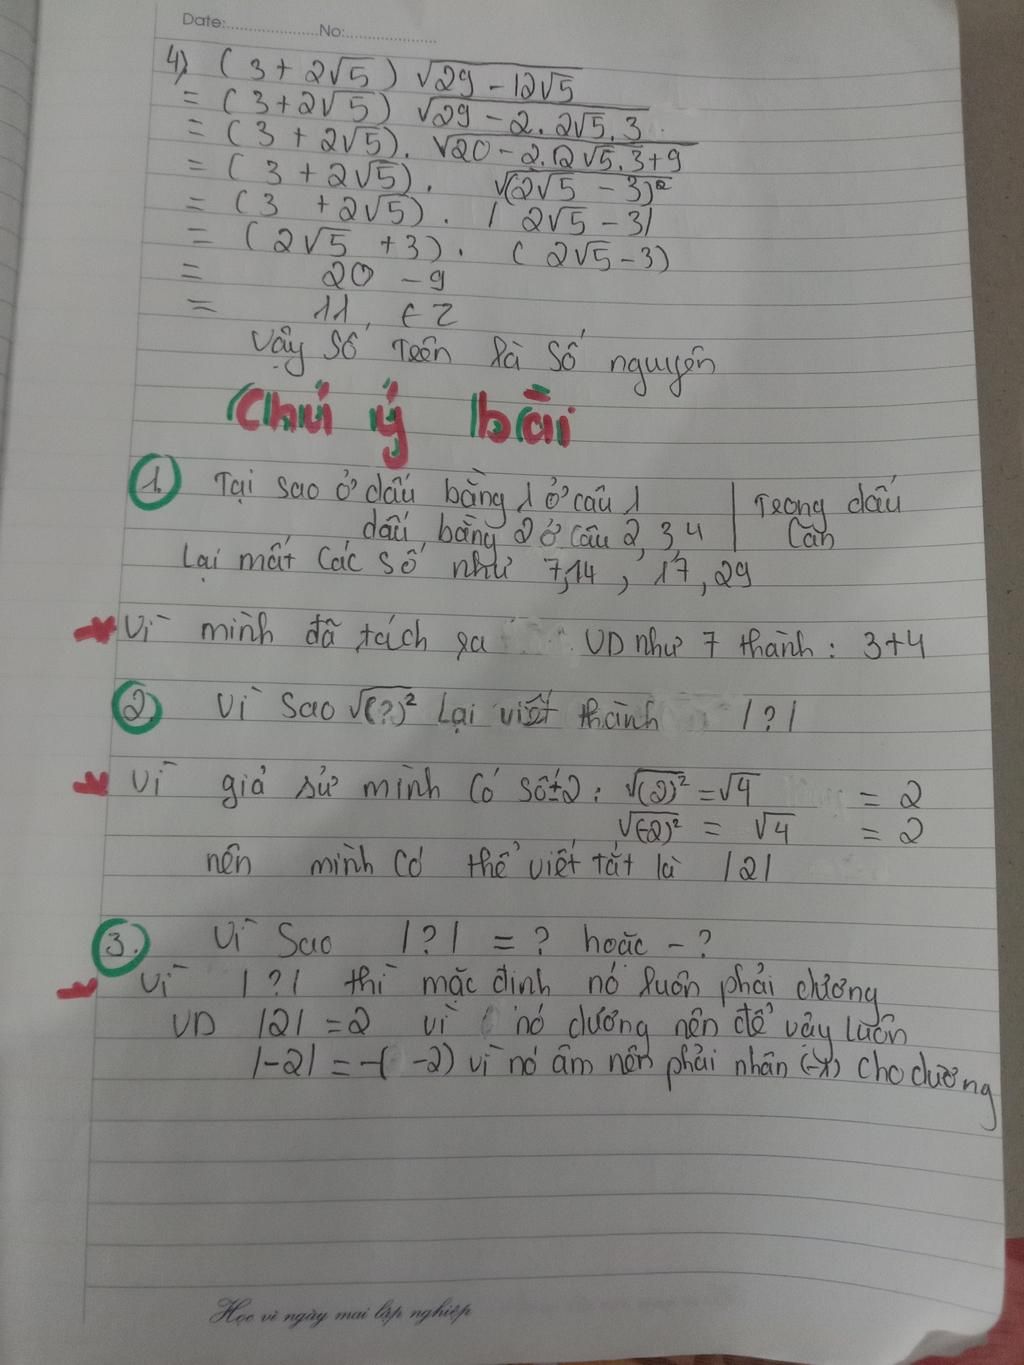 Date:.....................No:.....................
4) (3 + 2√5) √29 - 12√5
= (3 + 2√5) √29 - 2. 2√5. 3
= (3 + 2√5). √20 - 2.2√5. 3 + 9
= (3 + 2√5). √(2√5 - 3)²
= (3 + 2√5). | 2√5 - 3|
= (2√5 + 3). (2√5 - 3)
= 20 - 9
= 11, ∈ Z
Vậy số trên là số nguyên
Chú ý bài
1. Tại sao ở dấu bằng 1 ở câu 1 | Trong dấu
dấu bằng 2 ở câu 2, 3, 4 | căn
Lại mất các số như 7, 14, 17, 29
Vì mình đã tách ra VD như 7 thành: 3+4
2. Vì sao √(?)² Lại viết thành |?|
Vì giả sử mình có số ±2: √(2)² = √4 = 2
√(-2)² = √4 = 2
nên mình có thể viết tắt là |2|
3. Vì sao |?| = ? hoặc - ?
Vì |?| thì mặc định nó luôn phải dương
VD |2| = 2 vì nó dương nên để vậy luôn
|-2| = -(-2) vì nó âm nên phải nhân (-1) cho dương
Học vì ngày mai lập nghiệp